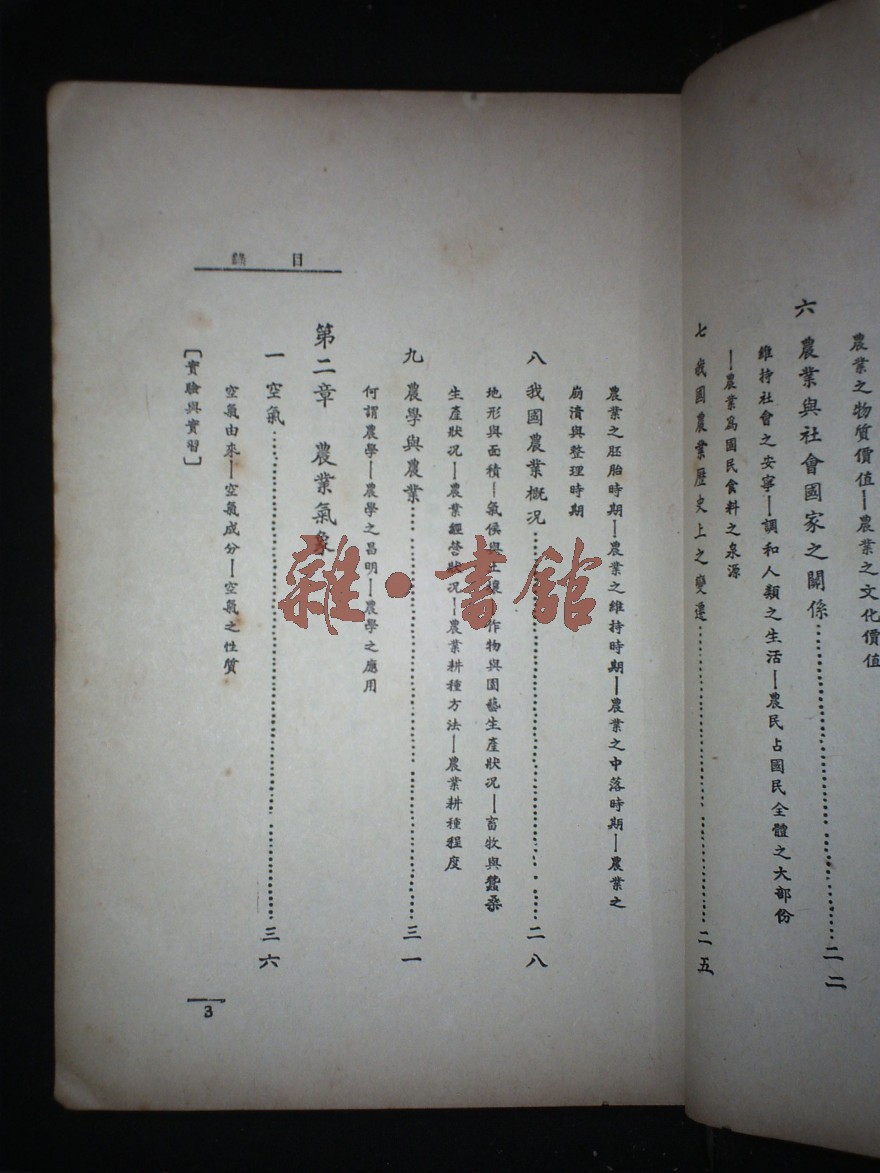 農業之物質價值—農業之文化價值
六 農業與社會國家之關係……二二
維持社會之安寧—調和人類之生活—農民占國民全體之大部份
—農業爲國民食料之泉源
七 我國農業歷史上之變遷……二五
農業之胚胎時期—農業之維持時期—農業之中落時期—農業之
崩潰與整理時期
八 我國農業概況……二八
地形與面積—氣候與土壤—作物與園藝生產狀況—畜牧與蠶桑
生產狀況—農業經營狀況—農業耕種方法—農業耕種程度
九 農學與農業……三一
何謂農學—農學之昌明—農學之應用
第二章 農業氣象
一 空氣……三六
空氣由來—空氣成分—空氣之性質
〔實驗與實習〕
目錄
3
雜·書館